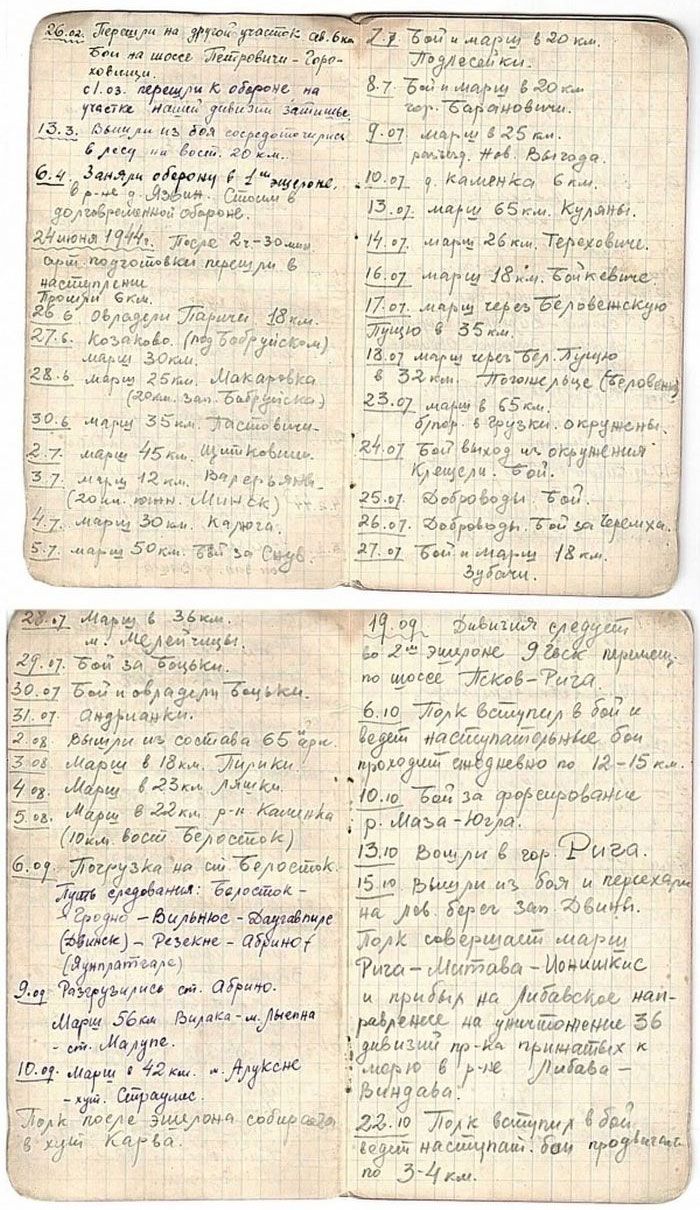 26.02. Перешли на другой участок св. 6 км
Бои на шоссе Петровичи - Горо-
ховищи.
с 1.03. перешли к обороне на
участке нашей дивизии затишье.
13.3. Вышли из боя сосредоточились
в лесу на вост. 20 км.
6.4. Заняли оборону в 1ом эшелоне.
в р-не д. Язвин. Стоим в
долговременной обороне.
24 июня 1944 г. После 2ч-30 мин
арт. подготовки перешли в
наступлени
Прошли 6 км.
26.6 Овладели Паричи 18 км.
27.6. Козаково. (под Бобруйском)
марш 30 км.
28.6 марш 25 км. Макаровка
(20 км. зап. Бобруйска)
30.6 марш 35 км. Пастовичи-
2.7. марш 45 км. Щитковичи.
3.7. марш 12 км. Валерьяны-
(20 км. южн. Минск)
4.7. марш 30 км. Калюга.
5.7. марш 50 км. Бой за Снув.
7.7. Бой и марш в 20 км.
Подлесейки.
8.7. Бой и марш в 20 км
гор. Барановичи.
9.07 марш в 25 км.
Нов. Выгода.
10.07 д. Каменка 6 км.
13.07 марш 65 км. Куляны.
14.07 марш 26 км. Тереховиче.
16.07 марш 18 км. Бойкевиче.
17.07 марш через Беловежскую
Пущю в 35 км.
18.07 марш через Бел. Пущю
в 32 км. Погожельце (Беловеж)
23.07 марш в 65 км.
б/пор. в Грузки. окружены.
24.07 Бой выход из окружения
Клещели. Бой.
25.07 Доброводы. Бой.
26.07. Доброводы. Бой за Черемха.
27.07 Бой и Марш 18 км.
Зубачи.
28.07 Марш в 36 км.
м. Мелейчицы.
29.07. Бой за Боцьки.
30.07 Бой и овладели Боцьки.
31.07. Андрианки.
2.08. Вышли из состава 65ой арм.
3.08 Марш в 18 км. Пилики.
4.08 Марш в 23 км. Ляшки.
5.08. Марш в 22 км р-н Каменка
(10 км. вост Белосток)
6.09. Погрузка на ст Белосток.
Путь следования: Белосток-
- Гродно - Вильнюс - Даугавпилс
(Двинск) - Резекне - Абрино
(Яунплатгале)
9.09 Разгрузились ст. Абрино.
Марш 56 км Вилака - м. Лиепна
- ст. Малупе.
10.09. Марш в 42 км. м. Алуксне
- хут. Страулис.
Полк после эшелона собирается
в хут Карва.
19.09 Дивизия следует
во 2ом эшелоне перемещ.
по шоссе Псков - Рига.
6.10 Полк вступил в бой и
ведет наступательные бои
проходит ежедневно по 12-15 км.
10.10 Бой за форсирование
р. Маза-Югла.
13.10 Вошли в гор. Рига.
15.10 Вышли из боя и переехали
на лев. берег зап. Двины.
Полк совершает марш
Рига - Митава - Ионишкис
и прибыл на Либавское нап-
равление на уничтожение 36
дивизий пр-ка прижатых к
морю в р-не Либава -
Виндава.
22.10 Полк вступил в бой
ведет наступат. бои продвигаясь
по 3-4 км.